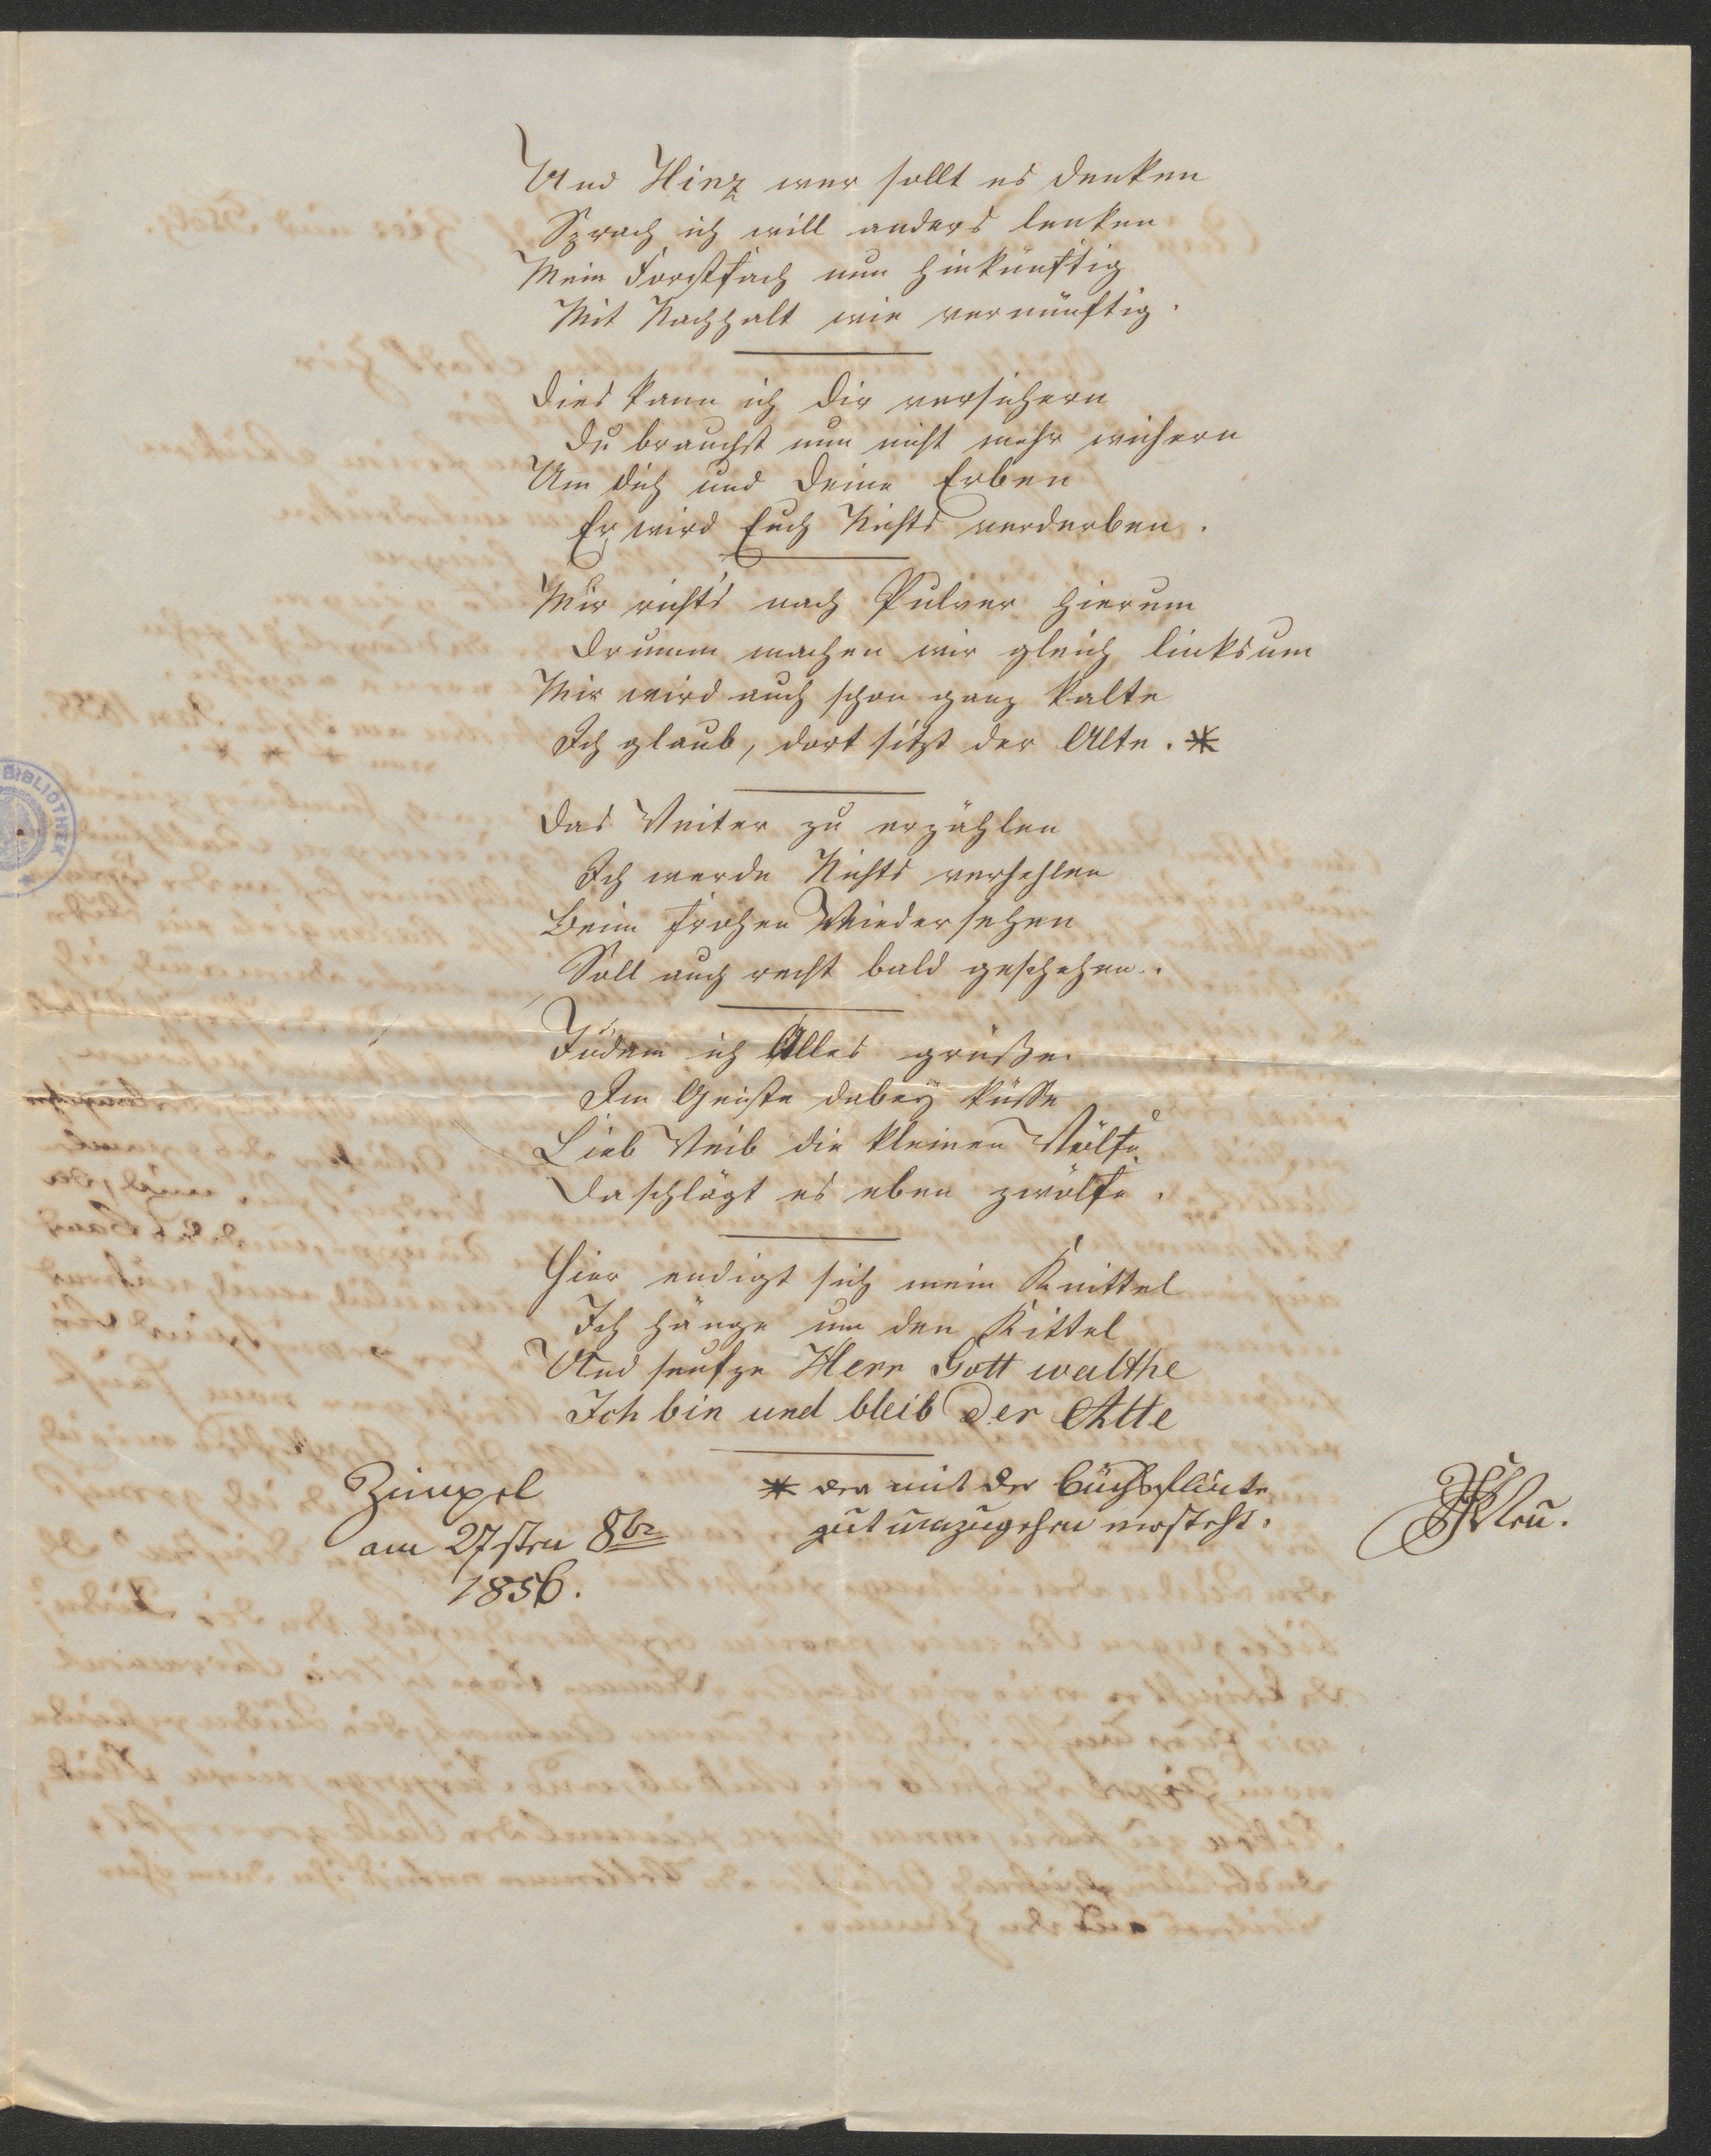 Und Hinz wer sollt es denken
Sprach ich will anders lenken
Mein Forstfach nun hinkünftig
Mit Nachhalt wie vernünftig.
Dies kann ich Dir versichern
Du brauchst nun nicht mehr wichern
Um Dich und Deine Erben
Er wird Euch Nichts verderben.
Mir richts nach Pulver hierum
Drumm machen wir gleich linksum
Mir wird auch schon ganz kalte
Ich glaub, dort sitzt der Alte. *
Das Weiter zu erzählen
Ich werde Nichts verhehlen
Beim frohen Wiedersehen
Soll auch recht bald geschehen.
Indem ich Alles grüße
Im Geiste dabey küsse
Lieb Weib die kleinen Wölfe
Da schlägt es eben zwölfe.
Hier endigt sich mein Knittel
Ich hänge um den Kittel
Und seufze Herr Gott walthe
Ich bin und bleib Der Alte
Zimpel
am 27sten 8br
1856.
* der mit der Büchsflinte
gut umzugehen versteht.
BIBLIOTHEK